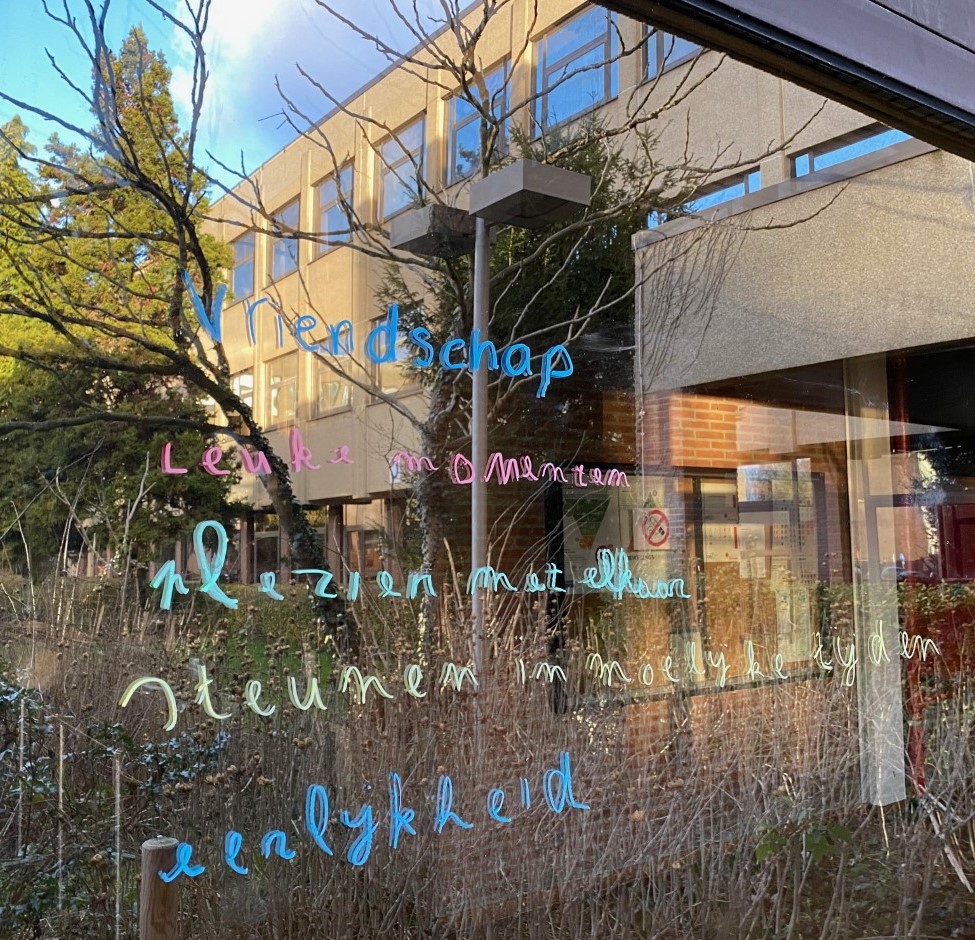 Vriendschap
Leuke momenten
plezien met elkaar
steunen in moelyke tyden
eerlijkheid